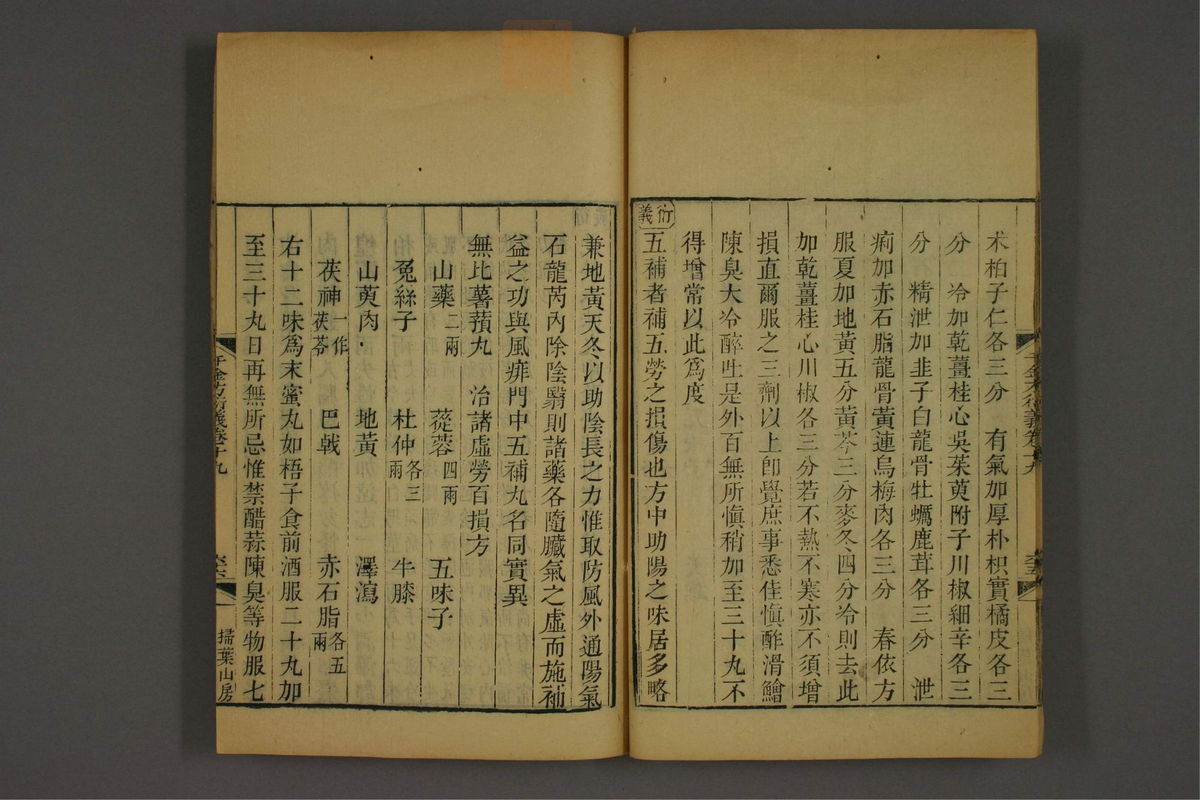 朮柏子仁各三分　有氣加厚朴枳實橘皮各三
分　冷加乾薑桂心吳茱萸附子川椒細辛各三
分　精泄加韭子白龍骨牡蠣鹿茸各三分　泄
痢加赤石脂龍骨黃連烏梅肉各三分　春依方
服夏加地黃五分黃芩三分麥冬四分冷則去此
加乾薑桂心川椒各三分若不熱不寒亦不須增
損直爾服之三劑以上卽覺庶事悉佳慎酢滑鱠
陳臭大冷醉吐是外百無所慎稍加至三十九不
得增常以此爲度
衍義
五補者補五勞之損傷也方中助陽之味居多略
兼地黃天冬以助陰長之力惟取防風外通陽氣
石龍芮內除陰翳則諸藥各隨臟氣之虛而施補
益之功與風痱門中五補丸名同實異
無比薯蕷丸　治諸虛勞百損方
山藥二兩　蓯蓉四兩　五味子
兔絲子　杜仲各三兩　牛膝
山萸肉　地黃　澤瀉
茯神一作茯苓　巴戟　赤石脂各五兩
右十二味爲末蜜丸如梧子食前酒服二十丸加
至三十丸日再無所忌惟禁醋蒜陳臭等物服七
千金方衍義卷十九
掃葉山房